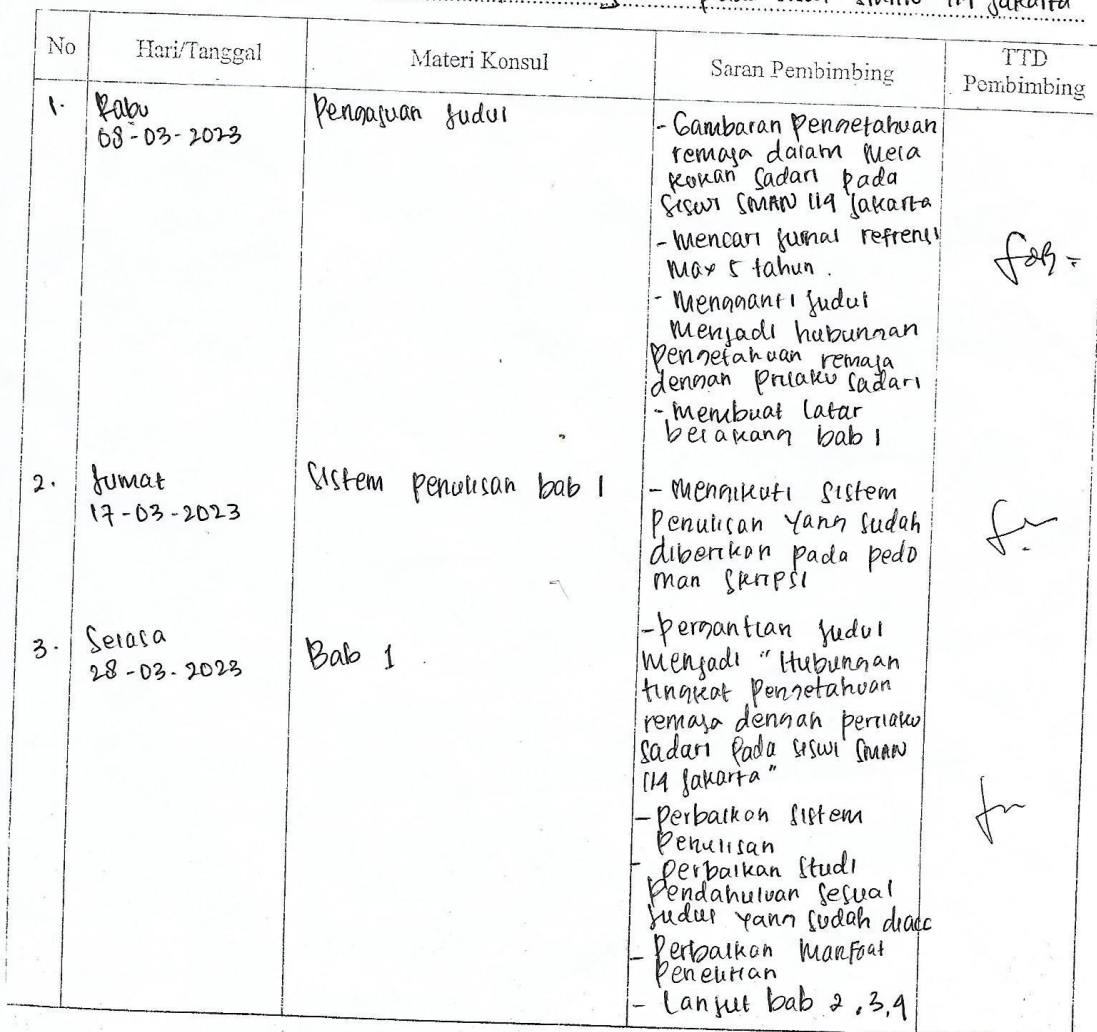 pada siswi SMAN 114 Jakarta
No
Hari/Tanggal
Materi Konsul
Saran Pembimbing
TTD
Pembimbing
1.
Rabu
08-03-2023
Pengajuan Judul
- Gambaran Pengetahuan
remaja dalam Mela
kukan Sadari pada
Siswi SMAN 114 Jakarta
- Mencari Jurnal refrensi
Max 5 tahun.
- Mengganti Judul
Menjadi hubungan
Pengetahuan remaja
dengan Prilaku Sadari
- Membuat Latar
belakang bab 1
2.
Jumat
17-03-2023
Sistem penulisan bab 1
- Mengikuti Sistem
Penulisan Yang Sudah
diberikan pada pedo
man Skripsi
3.
Selasa
28-03-2023
Bab 1
- Pergantian Judul
Menjadi "Hubungan
tingkat Pengetahuan
remaja dengan perilaku
Sadari Pada siswi SMAN
114 Jakarta"
- Perbaikan Sistem
Penulisan
- Perbaikan Studi
Pendahuluan Sesuai
Judul Yang Sudah diacc
- Perbaikan Manfaat
Penelitian
- Lanjut bab 2,3,4